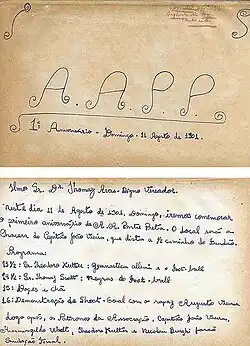 A. A. P. P.
1º Aniversário. Domingo. 11 Agosto de 1901.
Ilmo Sr. Dr. Thomaz Aras. Digno Vereador.
Neste dia 11 de Agosto de 1901, Domingo, iremos comemorar
o primeiro aniversário da A. A. Ponte Preta. O local será a
Chacara do Capitão João Vieira, que dista a ½ caminho de
Programa:
13 ½ - Sr. Theodor Kutter: Gymnastica allemã e o Foot-ball
14 ½ - Sr. Thomy Scott: Regras do Foot-ball
15: Doces e chá
16: Demonstração de Shoot-Goal com o rapaz Augusto Vieira
Logo após, os Patronos da Associação, Capitão João Vieira,
Theodor Kutter e Nicolau Burghi farão
Saudação Final.